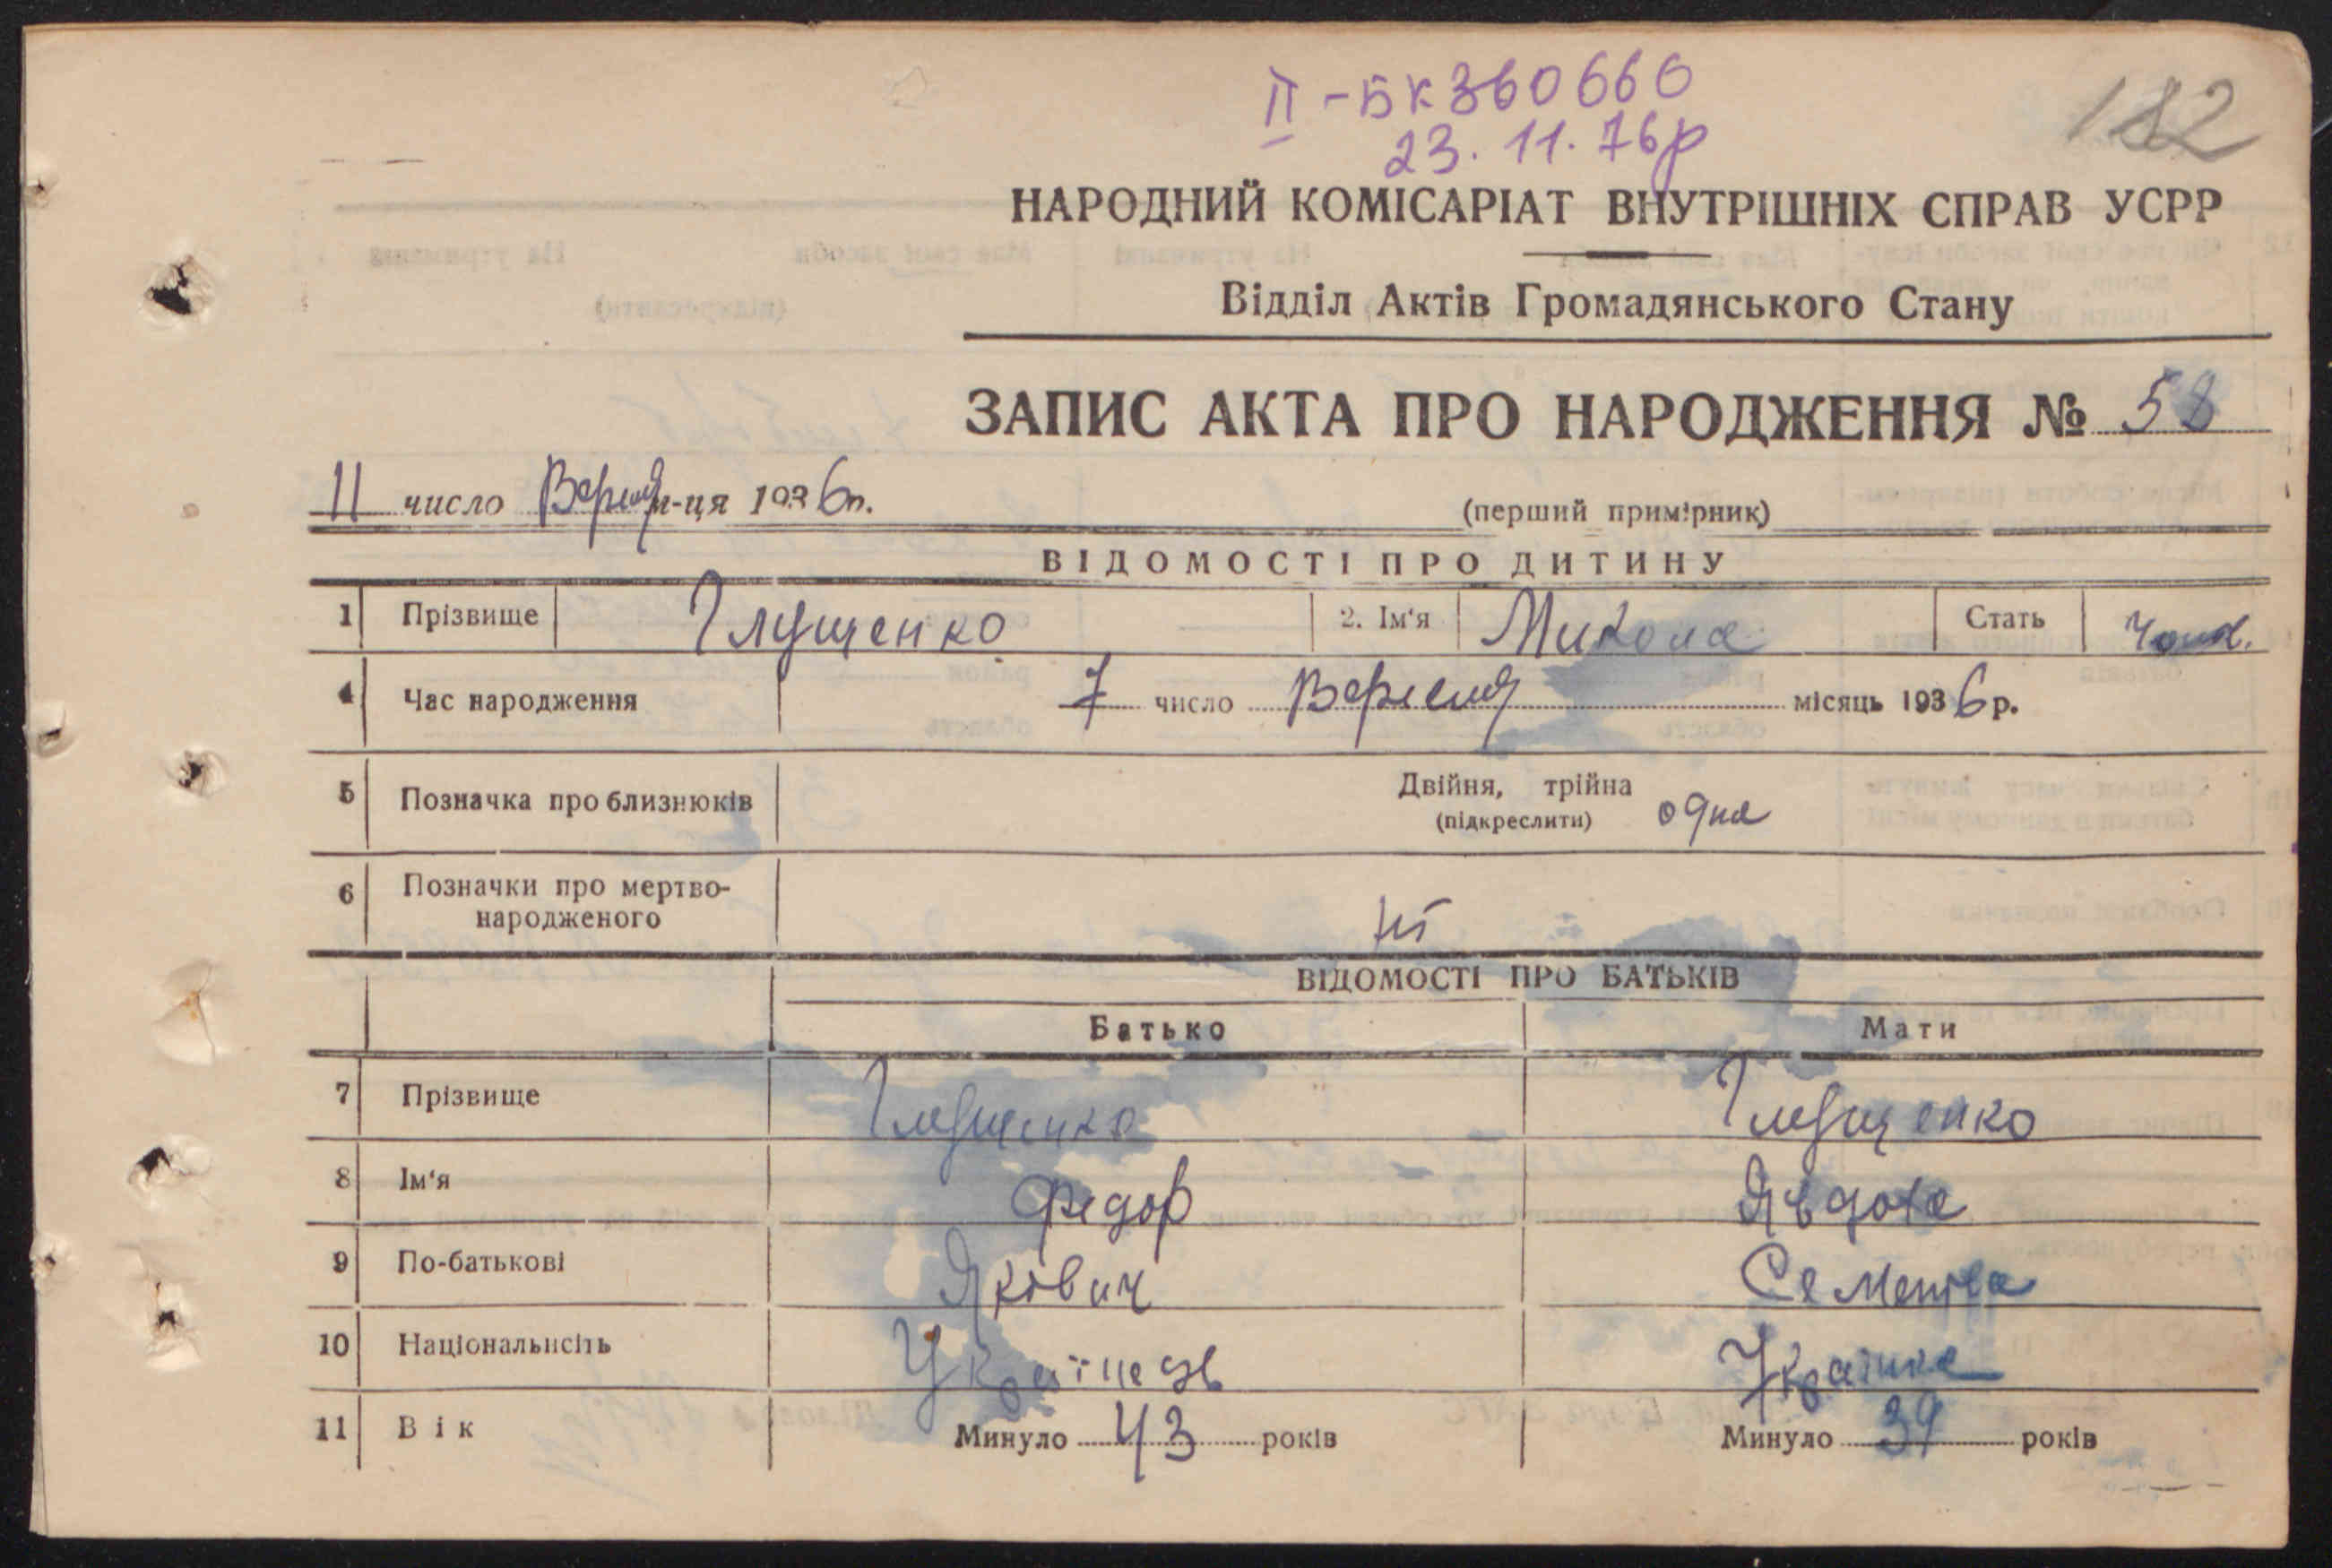 II - БК 360666
23. 11. 76р
182
НАРОДНИЙ КОМІСАРІАТ ВНУТРІШНІХ СПРАВ УСРР
Відділ Актів Громадянського Стану
ЗАПИС АКТА ПРО НАРОДЖЕННЯ № 58
11 число Вересня м-ця 1936 р.
(перший примірник)
ВІДОМОСТІ ПРО ДИТИНУ
1 Прізвище Глущенко 2. Ім'я Микола Стать чол.
4 Час народження 7 число Вересня місяць 1936 р.
5 Позначка про близнюків Двійня, трійна
(підкреслити) одна
6 Позначки про мертво-
народженого ні
ВІДОМОСТІ ПРО БАТЬКІВ
Батько Мати
7 Прізвище Глущенко Глущенко
8 Ім'я Федор Явдоха
9 По-батькові Якович Семенівна
10 Національність Українець Українка
11 Вік Минуло 43 років Минуло 39 років